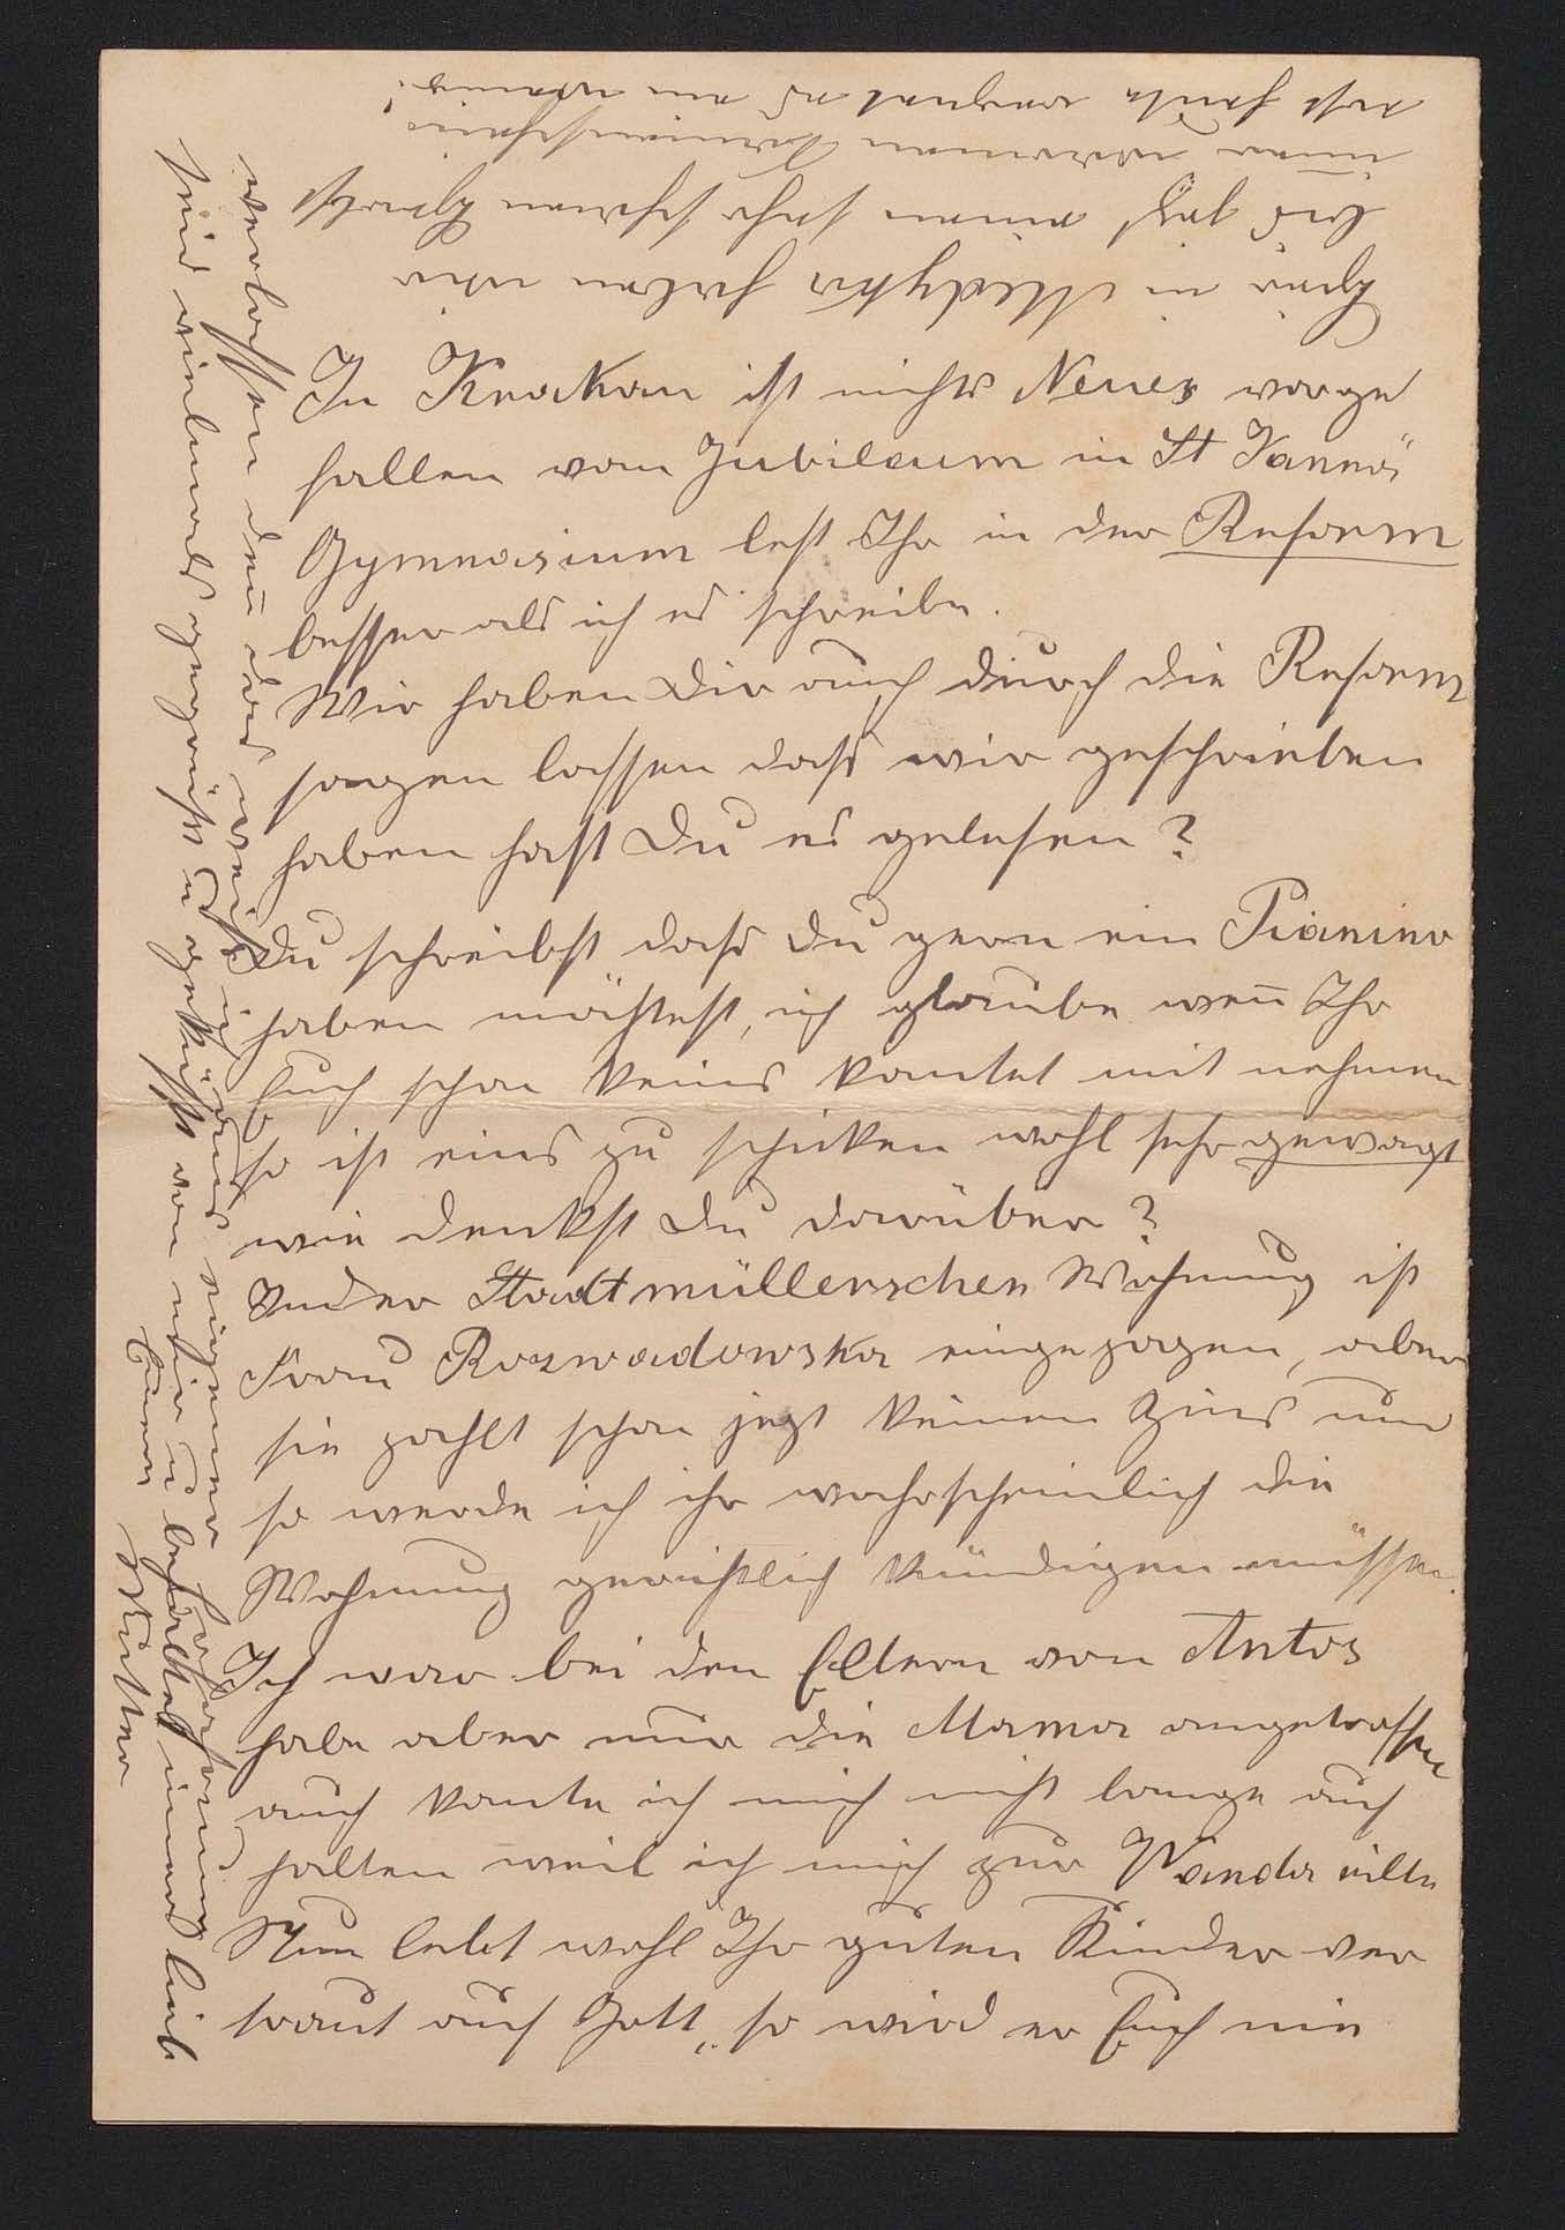 In Krakau ist nichts Neues vorge
fallen vom Jubileum in St Annä
Gymnasium lest Ihr in der Reform
besser als ich es schreibe.
Wir haben Dir auch durch die Reform
sagen lassen dass wir geschrieben
haben hast Du es gelesen?
Du schreibst dass Du gern ein Pianino
haben möchtest, ich glaube wen̄ Ihr
Euch schon keins kontet mit nehmen
so ist eins zu schicken wohl sehr gewagt
wie denkst Du darüber?
In der Stadtmüllerschen Wohnung ist
Frau Rozwadowska eingezogen, aber
sie zahlt schon jezt keinen Zins und
so werde ich ihr wahrscheinlich die
Wohnung gerichtlich kündigen müssen.
Ich war bei den Eltern von Antos
habe aber nur die Mama angetroffen
auch konte ich mich nicht lange auf
halten weil ich mich zur Wanda eilte
Nun lebt wohl Ihr guten Kinder ver
traut auf Gott, so wird er Euch nie
verlassen den̄ das weiss ich aus eigener Erfahrung
seid vielmals gegrüsst u geküsst von mir u behaltet im̄er lieb
Eure
Mutter
Hier in Medyka haben wir
bis jezt einen sehr schönen Herbst
im̄er warmen Sonnenschein
erst heute regnet es ein wenig!